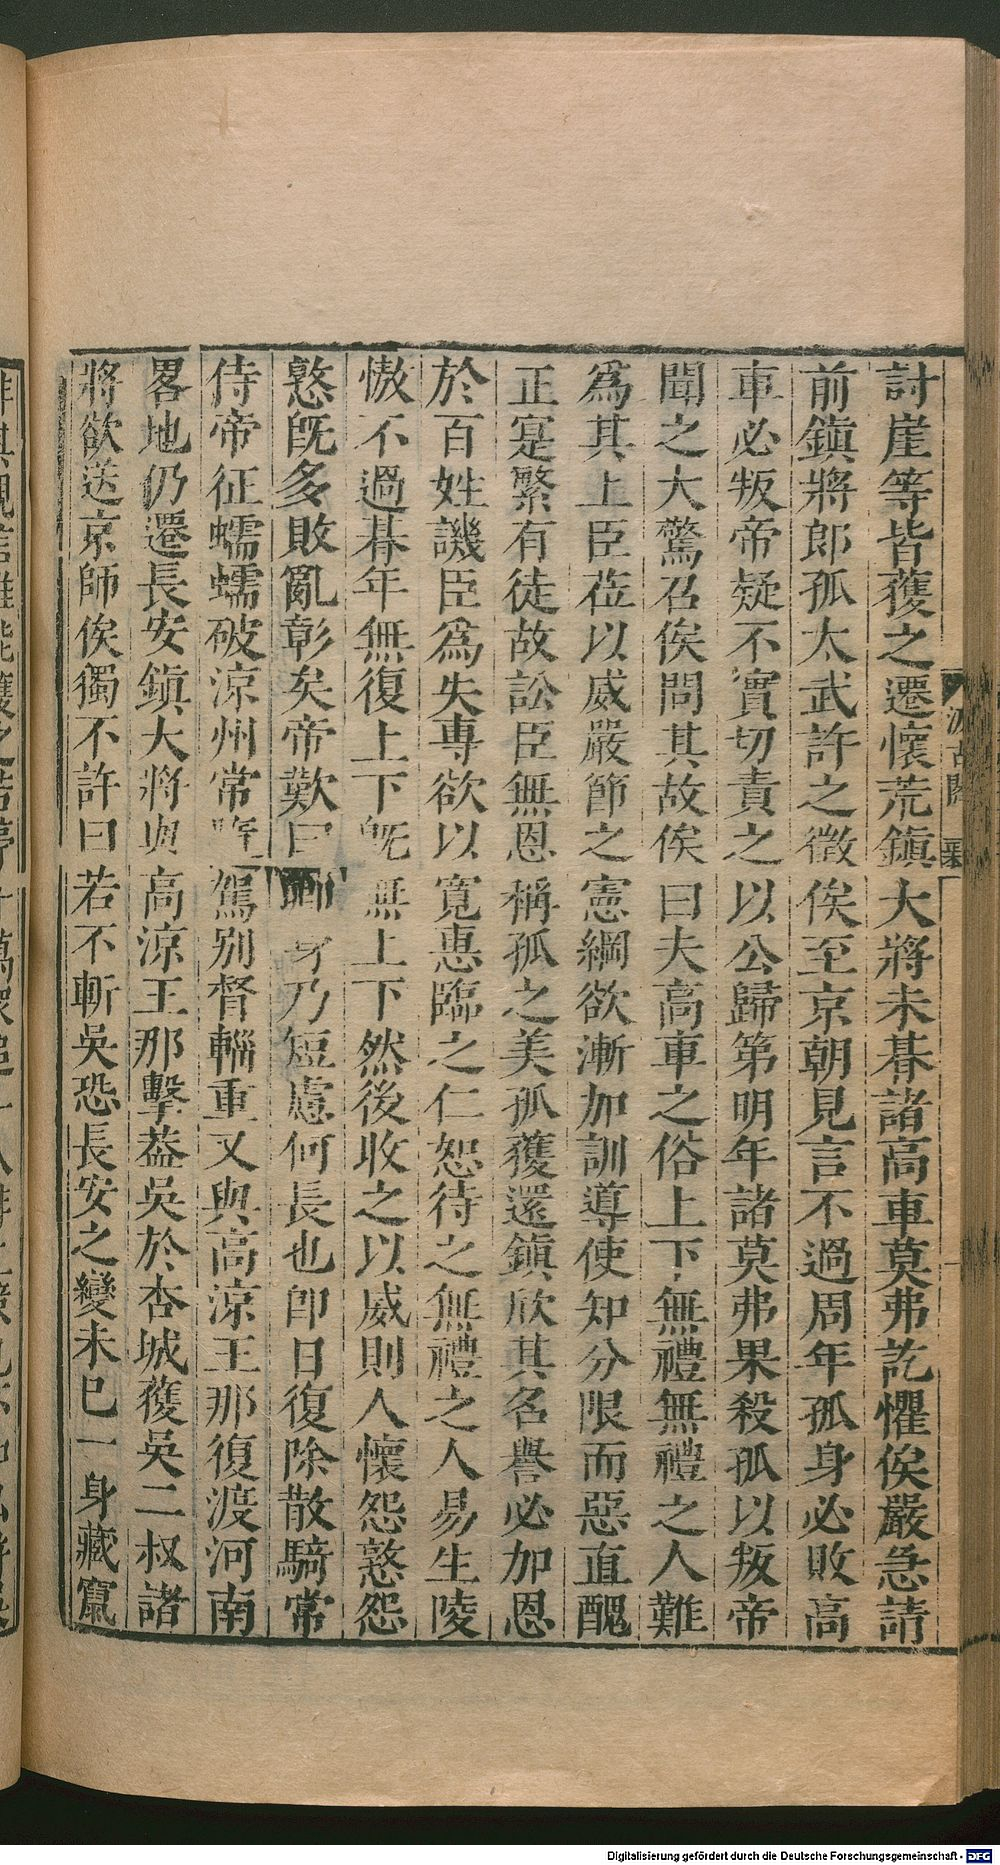 討崖等皆獲之遷懷荒鎮大將未朞諸高車莫弗訖懼俟嚴急請
前鎮將郎孤太武許之徵俟至京朝見言不過周年孤身必敗高
車必叛帝疑不實切責之以公歸第明年諸莫弗果殺孤以叛帝
聞之大驚召俟問其故俟曰夫高車之俗上下無禮無禮之人難
為其上臣莅以威嚴節之憲綱欲漸加訓導使知分限而惡直醜
正寔繁有徒故訟臣無恩稱孤之美孤獲還鎮欣其名譽必加恩
於百姓譏臣爲失專欲以寬惠臨之仁恕待之無禮之人易生陵
慠不過朞年無復上下旣無上下然後收之以威則人懷怨憝怨
憝旣多敗亂彰矣帝歎曰卿身乃短慮何長也卽日復除散騎常
侍帝征蠕蠕破涼州常隨駕別督輜重又與高涼王那復渡河南
畧地仍遷長安鎮大將與高涼王那擊蓋吳於杏城獲吳二叔諸
將欲送京師俟獨不許曰若不斬吳恐長安之變未已一身藏竄
Digitalisierung gefördert durch die Deutsche Forschungsgemeinschaft - DFG